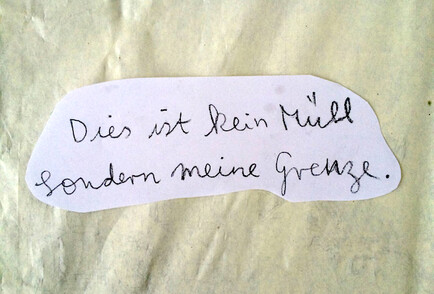 Dies ist kein Müll
sondern meine Grenze.